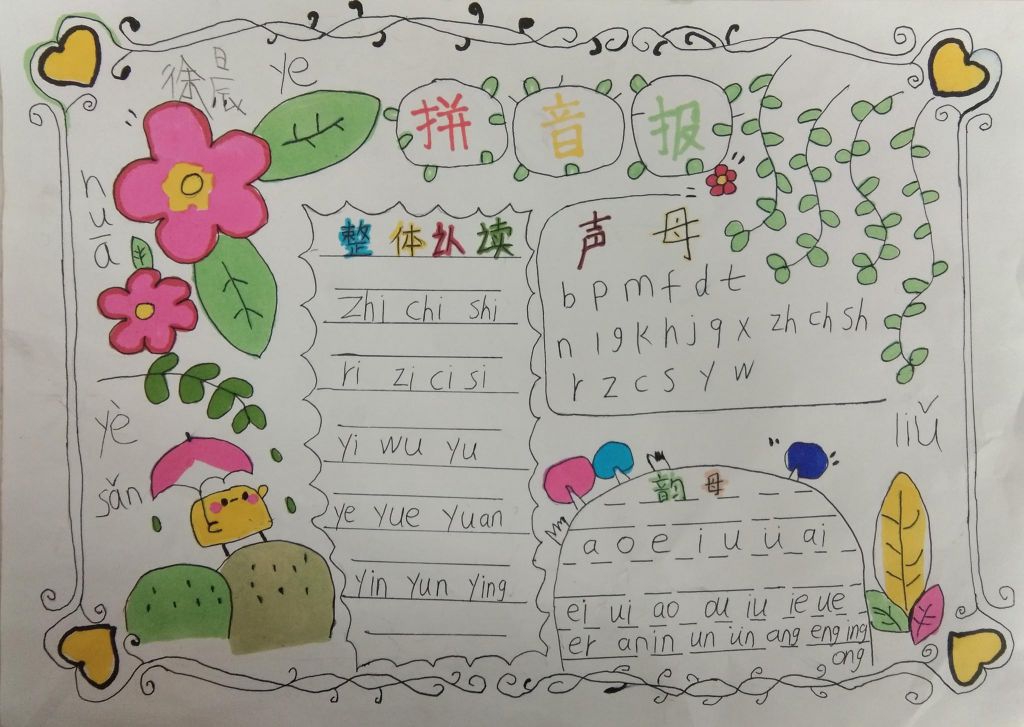 徐晨
ye
拼音报
nuā
整体认读
zhi chi shi
ri zi ci si
yi wu yu
ye yue yuan
yin yun ying
声母
b p m f d t
n l g k h j q x zh ch sh
r z c s y w
yè
sǎn
liǔ
韵母
a o e i u ü ai
ei ui ao ou iu ie ue
er an in un ün ang eng ing
ong